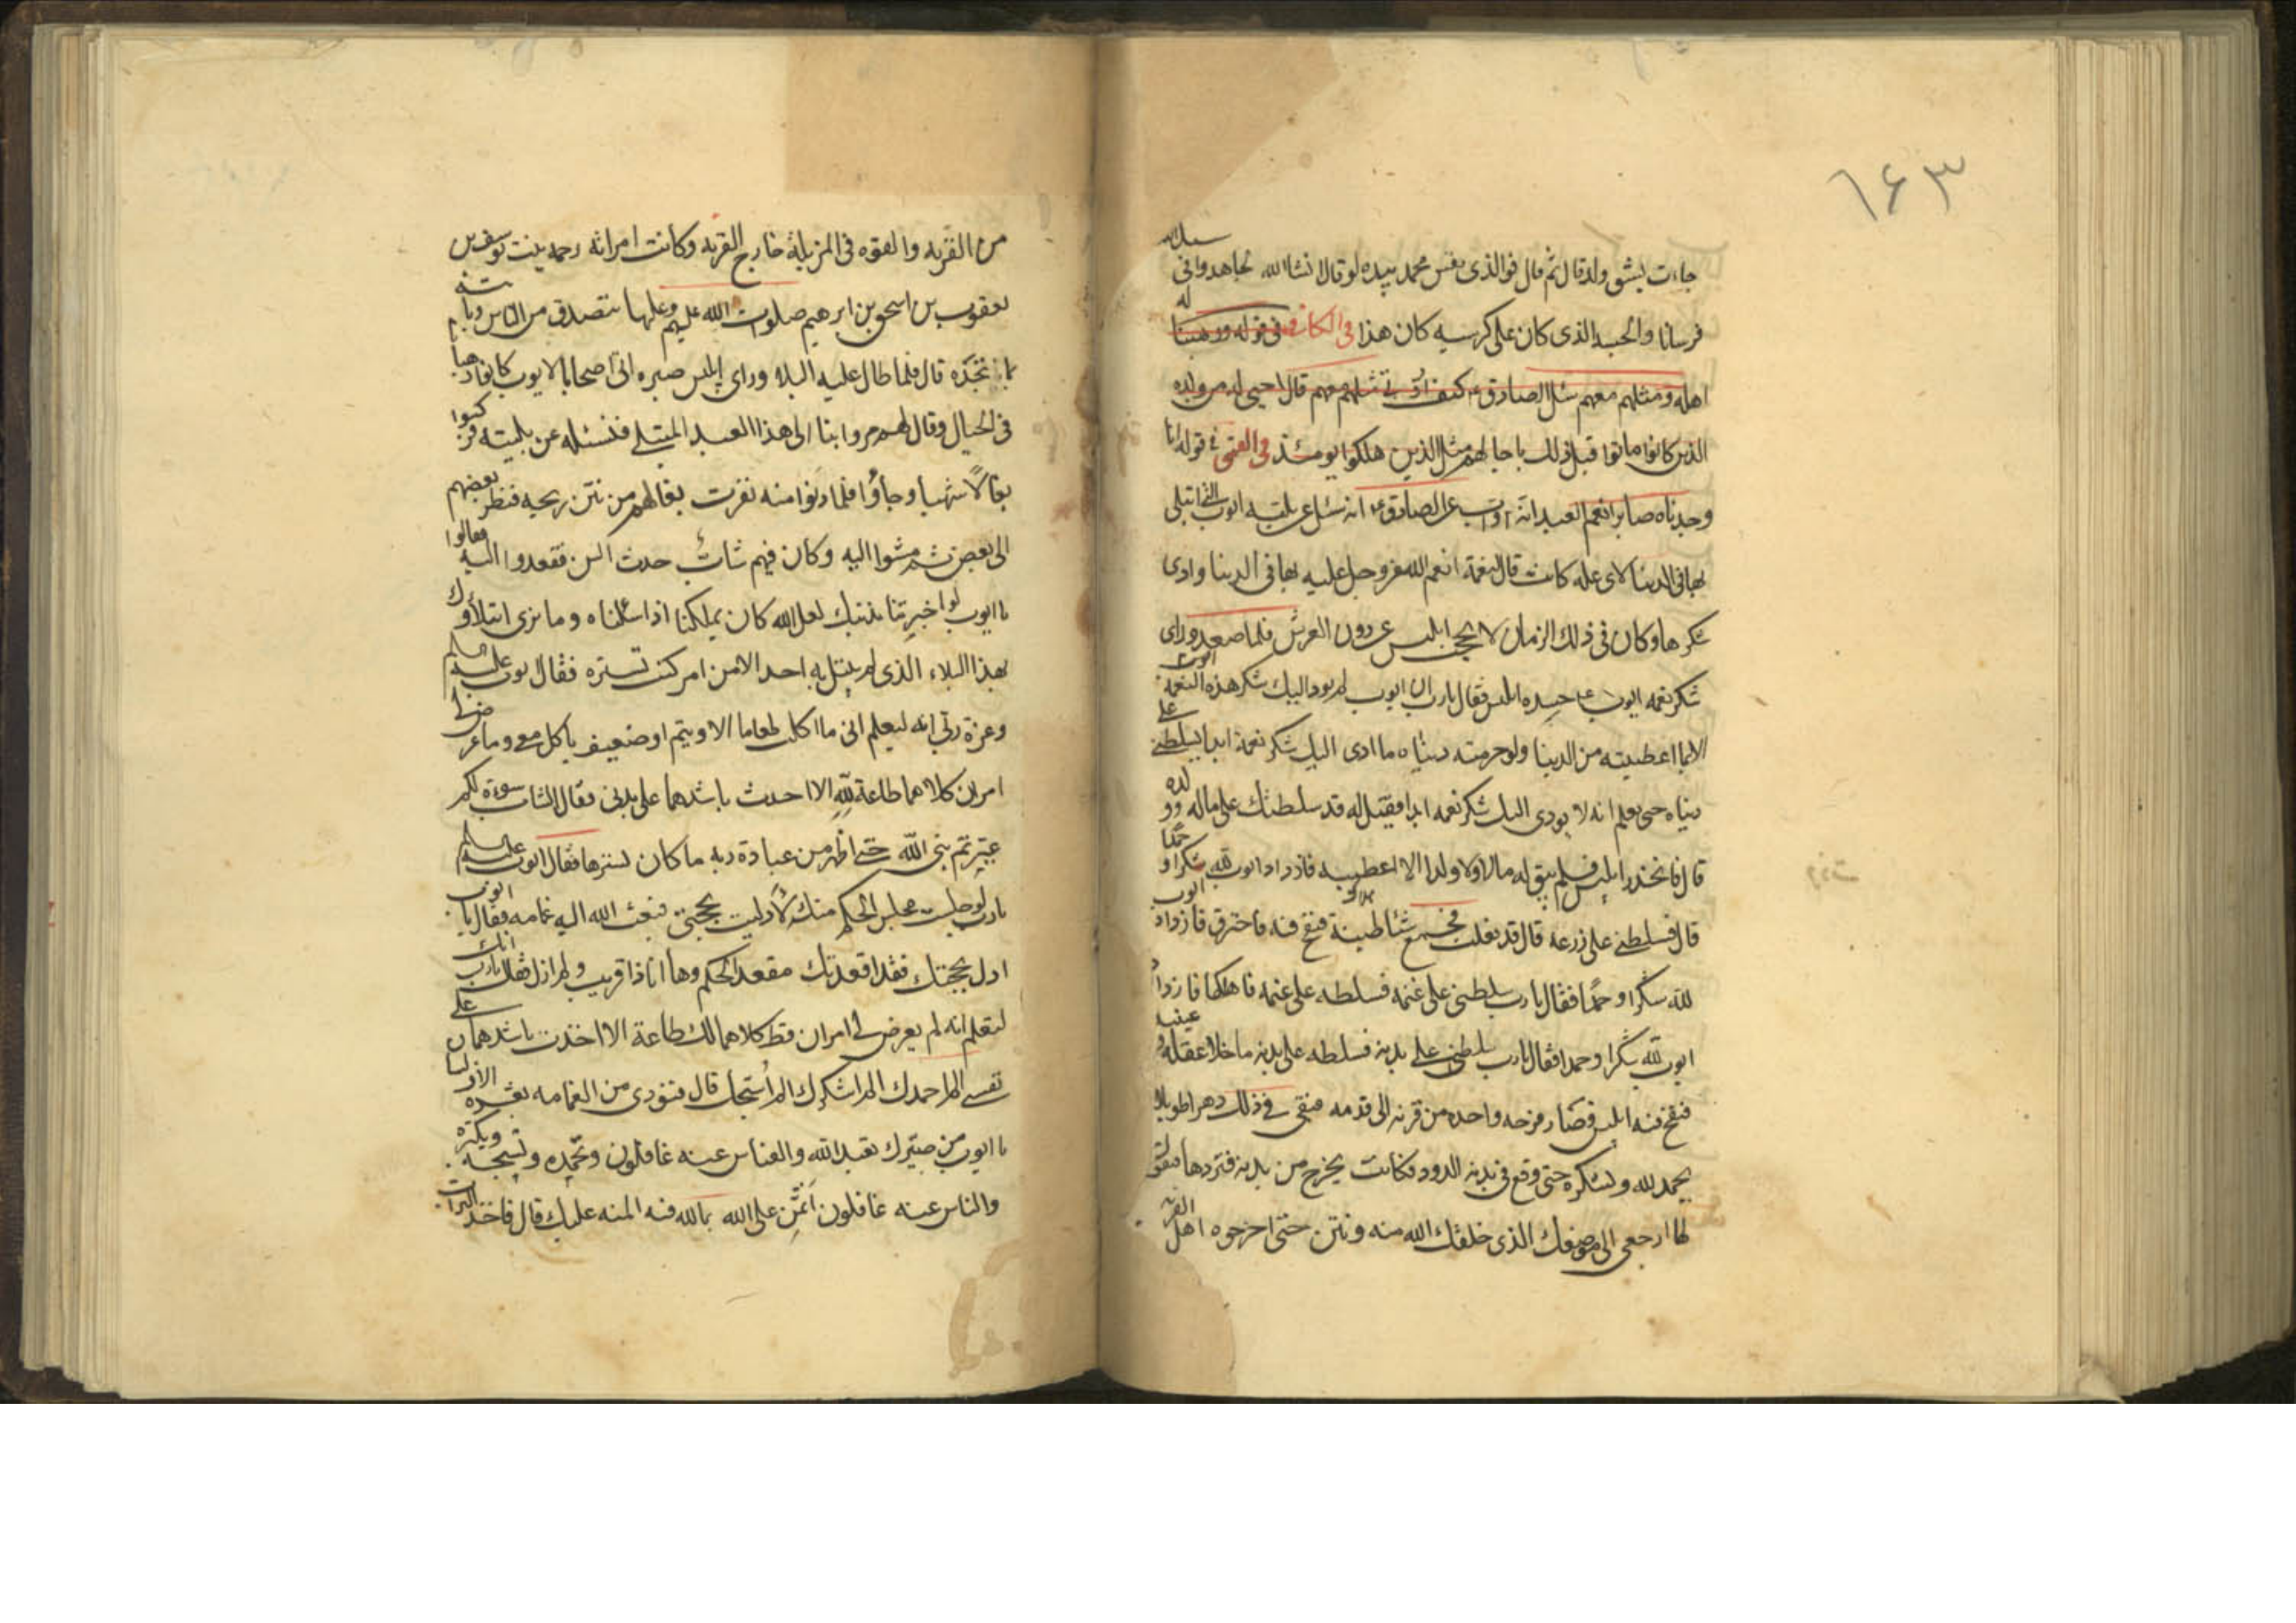 ۱۶۳
جاءت بشق ولد قال ثم قال فوالذی نفس محمد بیده لو قال انشاالله لجاهدوا فی سبیل الله
فرسانا والجسد الذی کان علی کرسیه کان هذا فی الکافی فی قوله ووهبنا له
اهله ومثلهم معهم سئل الصادق ع کیف اوتی مثلهم معهم قال احیی له من ولده
الذین کانوا ماتوا قبل ذلک باجالهم مثل الذین هلکوا یومئذ فی القمی فی قوله انا
وجدناه صابرا نعم العبد انه اواب عن الصادق ع انه سئل عن بلیه ایوب التی ابتلی
بها فی الدنیا لای علة کانت قال لنعمة انعم الله عزوجل علیه بها فی الدنیا وادی
شکرها وکان فی ذلک الزمان لا یحجب ابلیس عن دون العرش فلما صعد ورای
شکر نعمه ایوب ع حسده ابلیس فقال یارب ان ایوب لم یود الیک شکر هذه النعمه
الا بما اعطیته من الدنیا ولو حرمته دنیاه ما ادی الیک شکر نعمة ابدا فسلطنی علی
دنیاه حتی یعلم انه لا یودی الیک شکر نعمه ابدا فقیل له قد سلطتک علی ماله وولده
قال فانحدر ابلیس فلم یبق له مالا ولا ولدا الا اعطبه فازداد ایوب لله شکرا وحمدا
قال فسلطنی علی زرعه قال قد فعلت فجمع شیاطینه فنفخ فیه فاحترق فازداد ایوب
لله شکرا وحمدا فقال یارب سلطنی علی غنمه فسلطه علی غنمه فاهلکها فازداد
ایوب لله شکرا وحمدا فقال یارب سلطنی علی بدنه فسلطه علی بدنه ما خلا عقله وعینیه
فنفخ فیه ابلیس فصار قرحه واحده من قرنه الی قدمه فبقی فی ذلک دهرا طویلا
یحمد لله ویشکره حتی وقع فی بدنه الدود فکانت یخرج من بدنه فتردها فیقول
لها ارجعی الی موضعک الذی خلقک الله منه ونتن حتی اخرجوه اهل القریه
من القریه والقوه فی المزبلة خارج القریه وکانت امراته رحمه بنت یوسف بن
یعقوب بن اسحق بن ابرهیم صلوات الله علیهم وعلیها تتصدق من الناس وتاتیه
بما تجده قال فلما طال علیه البلاء ورای ابلیس صبره اتی اصحابا لایوب کانوا رهبانا
فی الجبال وقال لهم مروا بنا الی هذا العبد المبتلی فنسئله عن بلیته فرکبوا
بغالا شهبا وجاوا فلما دنوا منه نفرت بغالهم من نتن ریحه فنظر بعضهم
الی بعض ثم مشوا الیه وکان فیهم شاب حدث السن فقعدوا الیه وقالوا
یا ایوب لو اخبرتنا بذنبک لعل الله کان یهلکنا اذا سئلناه وما نری ابتلاؤک
بهذا البلاء الذی لم یبتل به احد الا من امر کنت تستره فقال ایوب علیه السلام
وعزة ربی انه لیعلم انی ما اکلت طعاما الا ویتیم او ضعیف یاکل معی وما عرض لی
امران کلاهما طاعة لله الا احدث باشدهما علی بدنی فقال الشاب سوءة لکم
عیرتم نبی الله حتی اظهر من عبادة ربه ما کان یسترها فقال ایوب علیه السلام
یارب لو جلست مجلس الحکم منک لادلیت بحجتی فبعث الله الیه غمامه فقال یا ایوب
ادل بحجتک فقد اقعدتک مقعد الحکم وها انا ذا قریب ولم ازل فقال یارب انک
لتعلم انه لم یعرض لی امران قط کلاهما لک طاعة الا اخذت باشدهما علی
نفسی الم احمدک الم اشکرک الم اسبحک قال فنودی من الغمامه بعشره الاف لسان
یا ایوب من صیرک تعبد الله والناس عنه غافلون وتحمده وتسبحه وتکبره
والناس عنه غافلون اتمن علی الله بما لله فیه المنه علیک قال فاخذ التراب